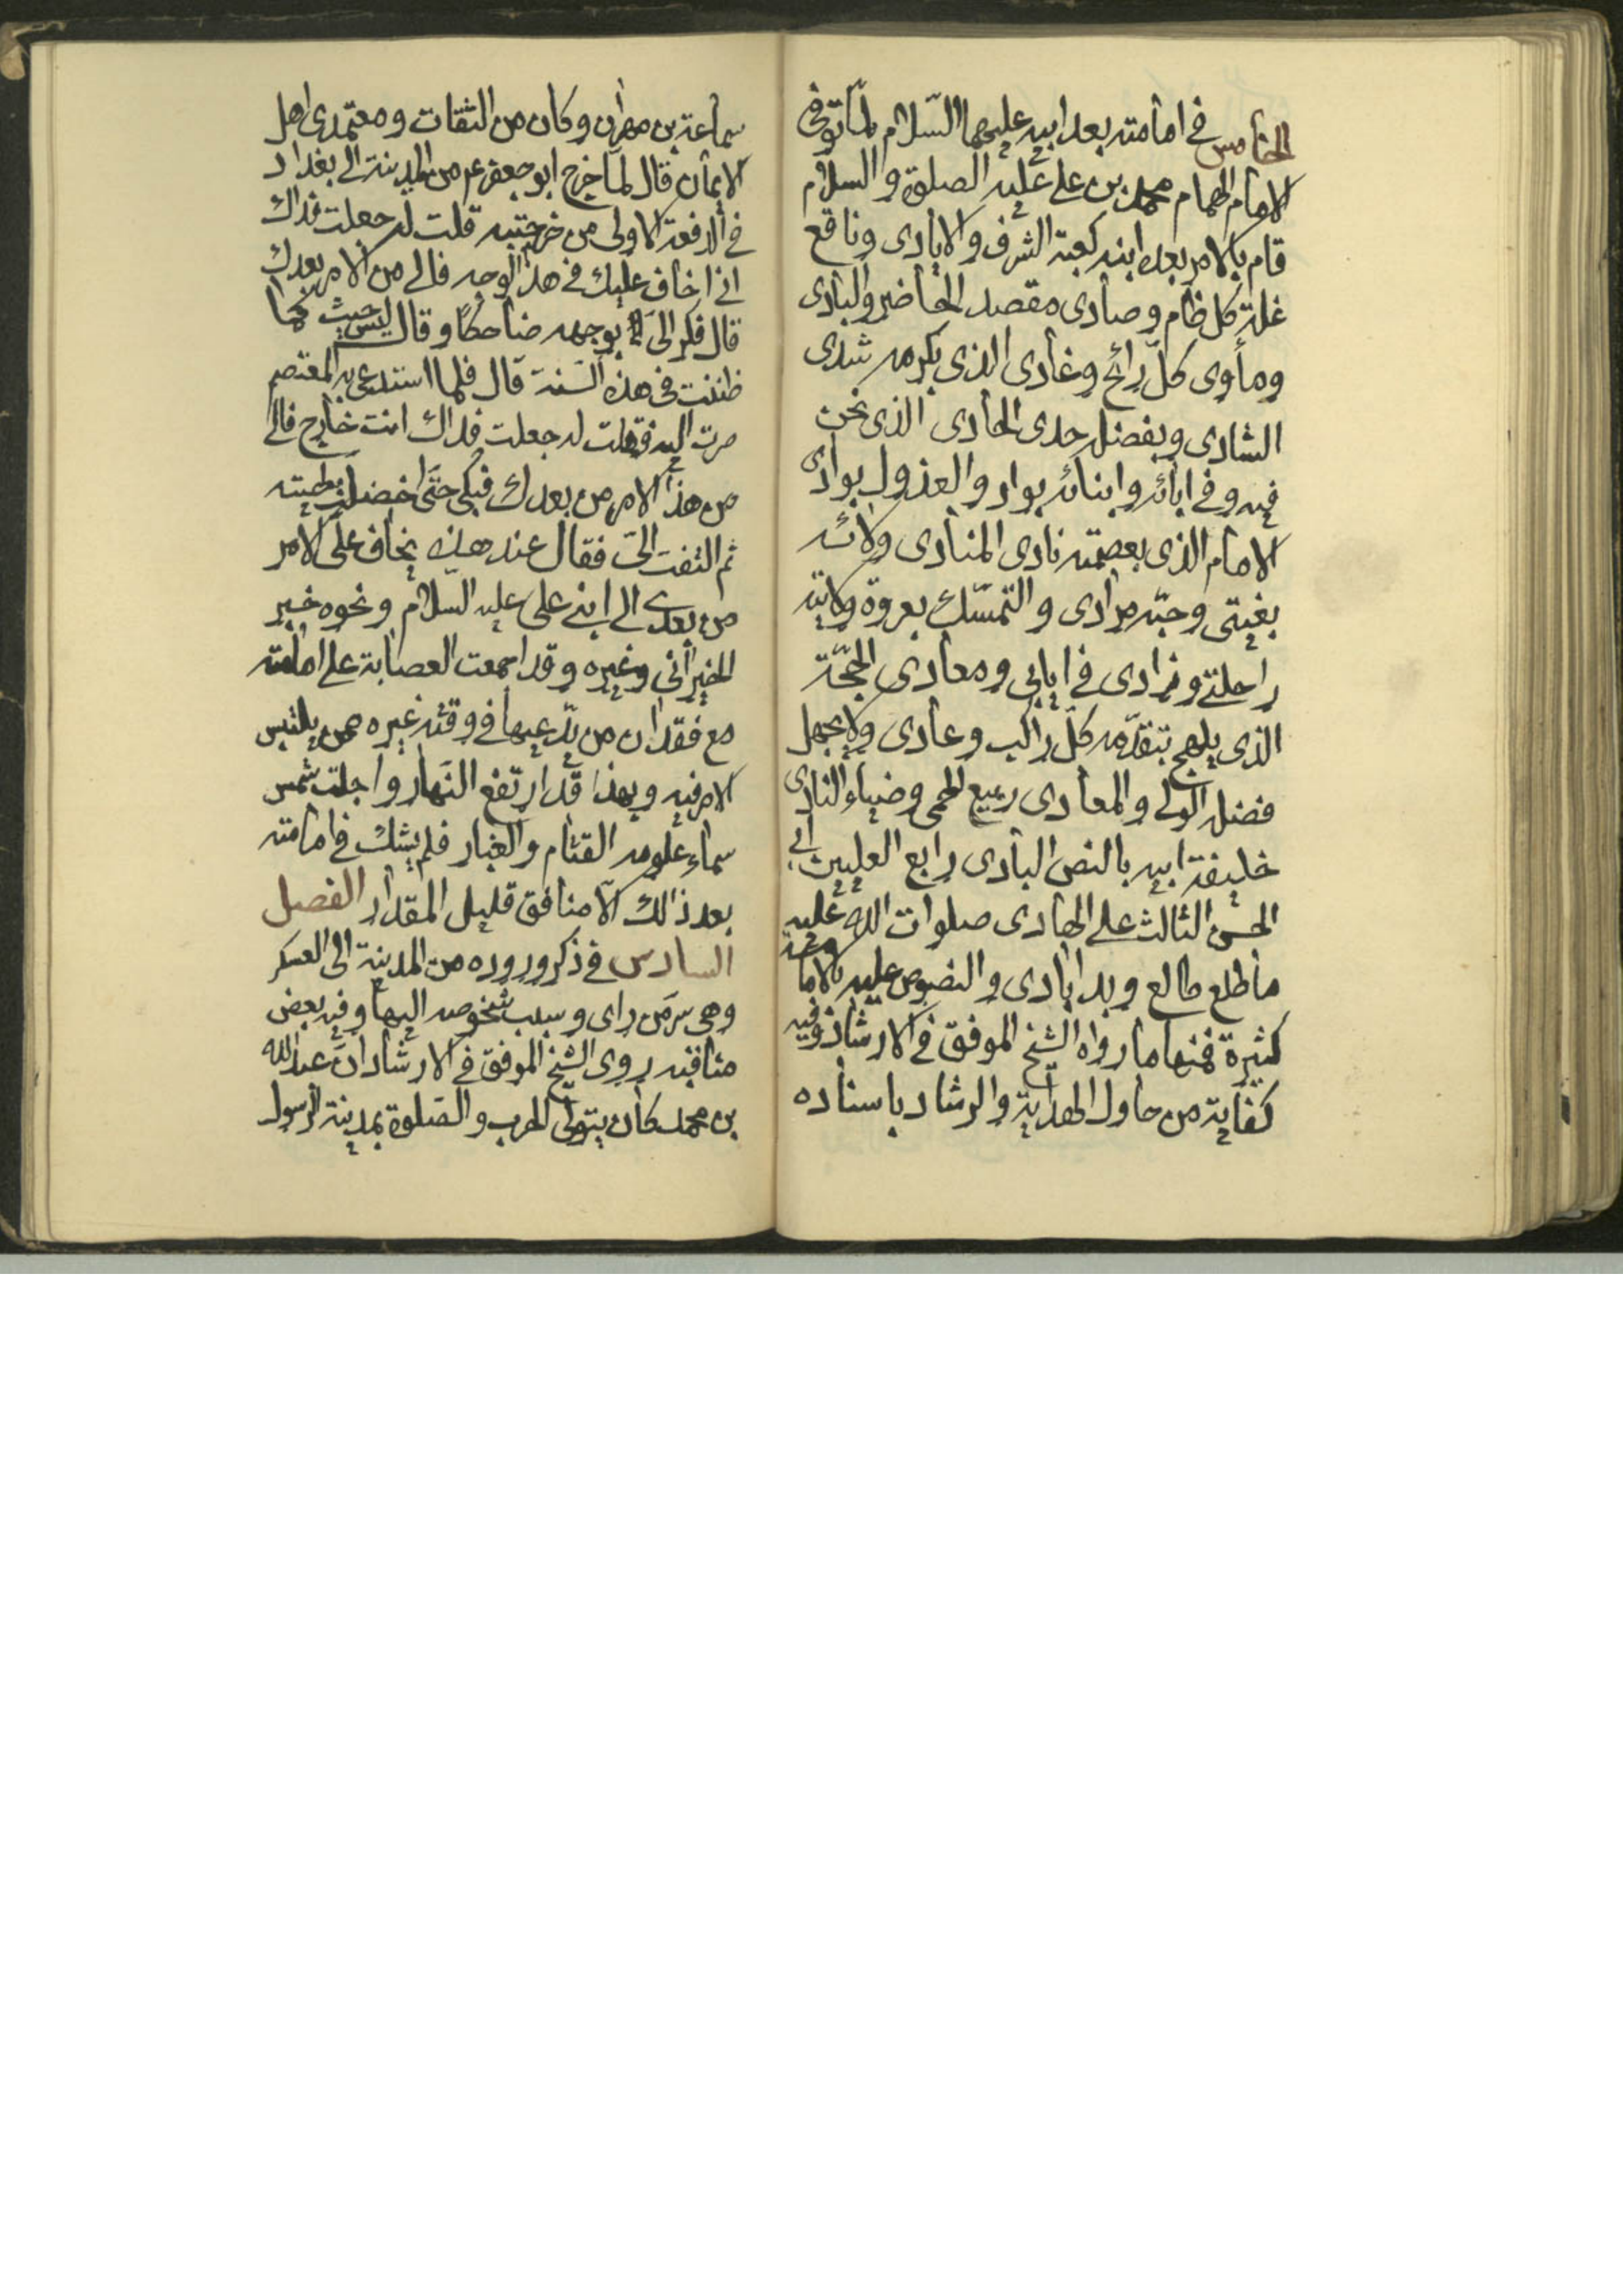 الخامس في امامته بعد ابيه عليهما السّلام لمّا توفى
الامام الهمام محمد بن علي عليه الصلوة والسلام
قام بالامر بعده ابنه كعبة الشرف والايادى وناقع
غلة كل ظام وصادى مقصد الحاضر والبادى
ومأوى كلّ رائح وغادى الذى بكرمه شدى
الشادى وبفضله حدى الحادى الذى نحن
فيه وفى ابائه وابنائه بواد والعذول بوادى
الامام الذى بعصمته نادى المنادى ولائه
بغيتى وحبّه مرادى والتمسّك بعروة ولايته
راحلتي وزادى في ايابى ومعادى الحجّة
الذى يلهج بتقدّمه كلّ راكب وعادى ولا يجهل
فضله الولى والمعادى ربيع الحمى وضياء النادى
خليفة ابيه بالنص البادى رابع العليين ابى
الحسن الثالث على الهادى صلوات الله عليه
ما طلع طالع وبدا بادى والنصوص عليه بالامامة
كثيرة فمنها ما رواه الشيخ الموفق فى الارشاد وفيه
كفاية من حاول الهداية والرشاد باسناده
سماعة بن مهران وكان من الثقات ومعتمدى اهل
الايمان قال لمّا خرج ابو جعفر عم من المدينة الى بغداد
في الدفعة الاولى من خرجتيه قلت له جعلت فداك
انى اخاف عليك فى هذا الوجه فالى من الامر بعدك
قال فكر الىّ بوجهه ضاحكا وقال ليس حيث كما
ظننت فى هذه السّنة قال فلما استدعى به المعتصم
صرت اليه فقلت له جعلت فداك انت خارج فالى
من هذا الامر من بعدك فبكى حتّى اخضلت لحيته
ثم التفت الىّ فقال عند هذه يخاف علىّ الامر
من بعدى الى ابنى على عليه السّلام ونحوه خبر
الخيرانى وغيره وقد اجمعت العصابة على امامته
مع فقدان من يدّعيها فى وقته غيره ممن يلتبس
الامر فيه وبهذا قد ارتفع النّهار واجلت شمس
سماء علومه القتام والغبار فلم يشك فى امامته
بعد ذالك الّا منافق قليل المقدار الفصل
السادس فى ذكر وروده من المدينة الى العسكر
وهى سرّ من راى وسبب شخوصه اليها وفيه بعض
مناقبه روى الشيخ الموفق فى الارشاد انّ عبد الله
بن محمد كان يتولى الحرب والصّلوة بمدينة الرسول